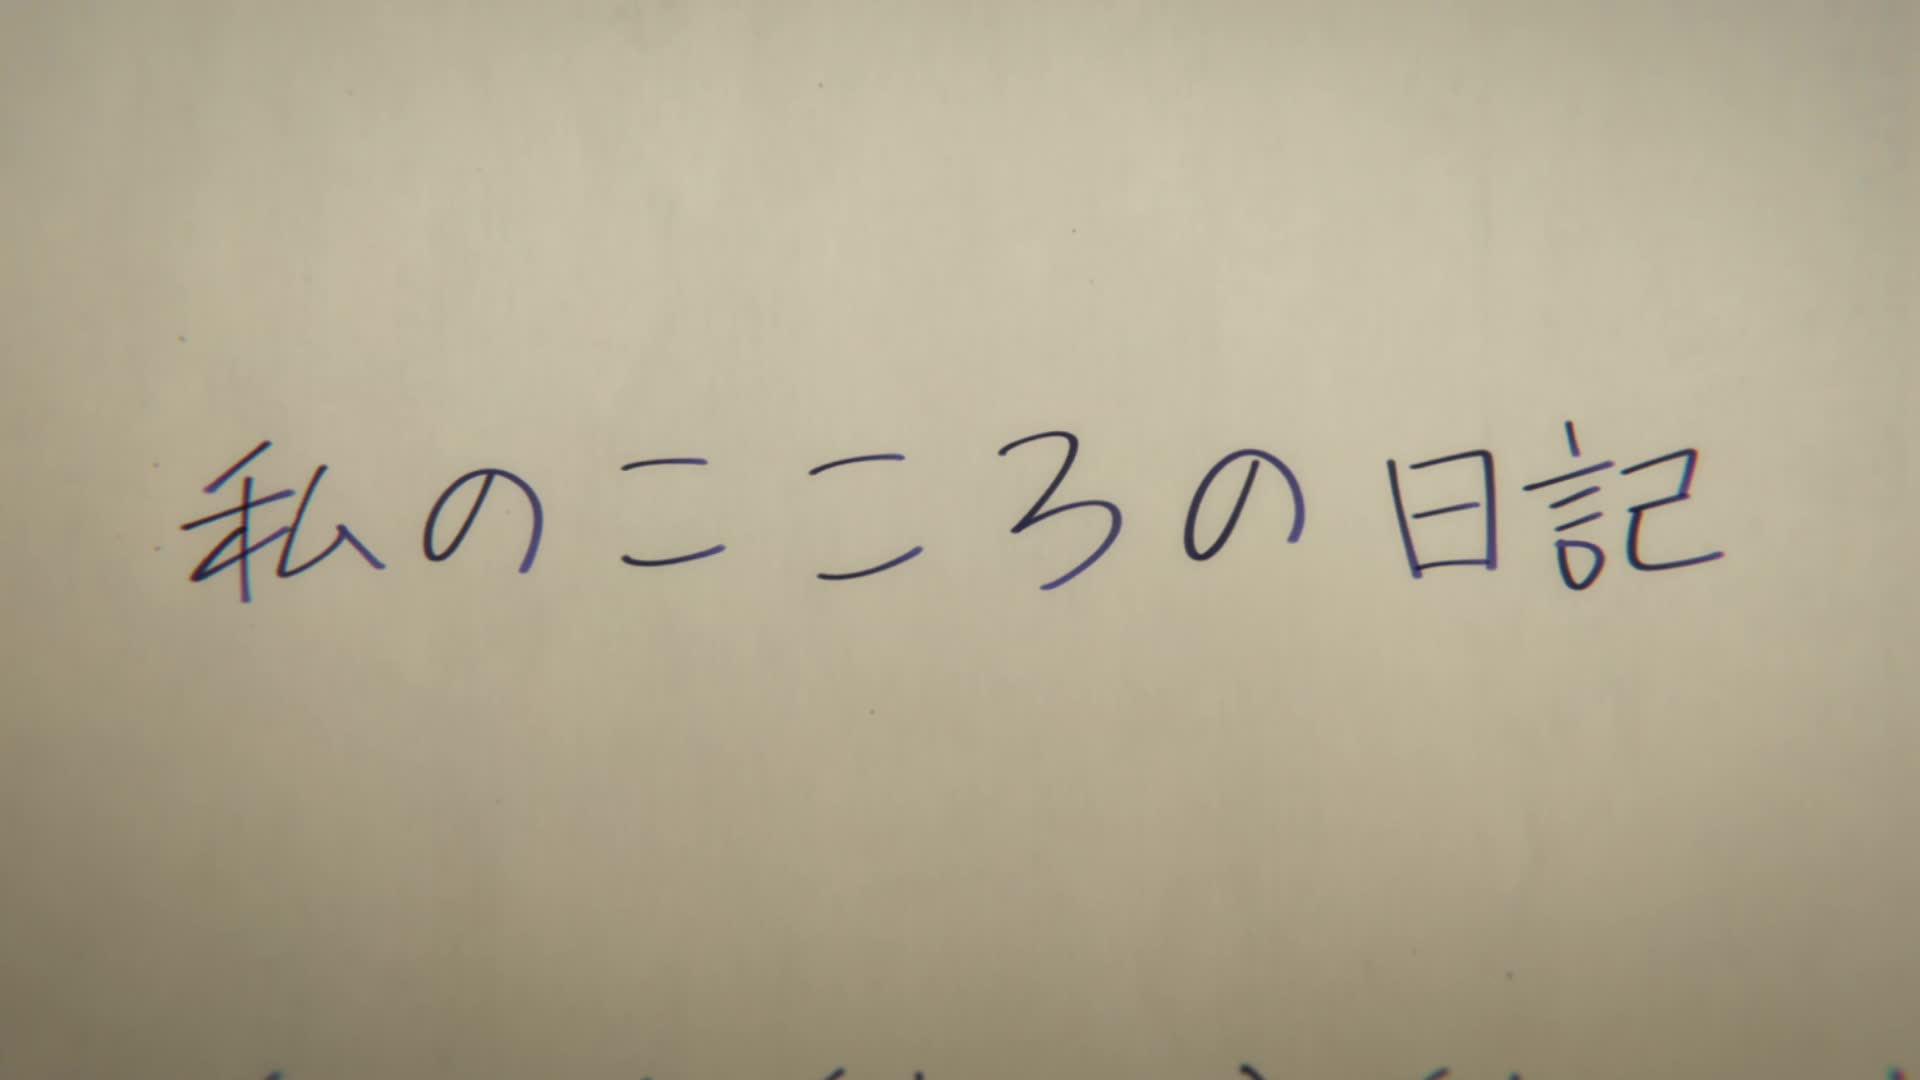 私のこころの日記